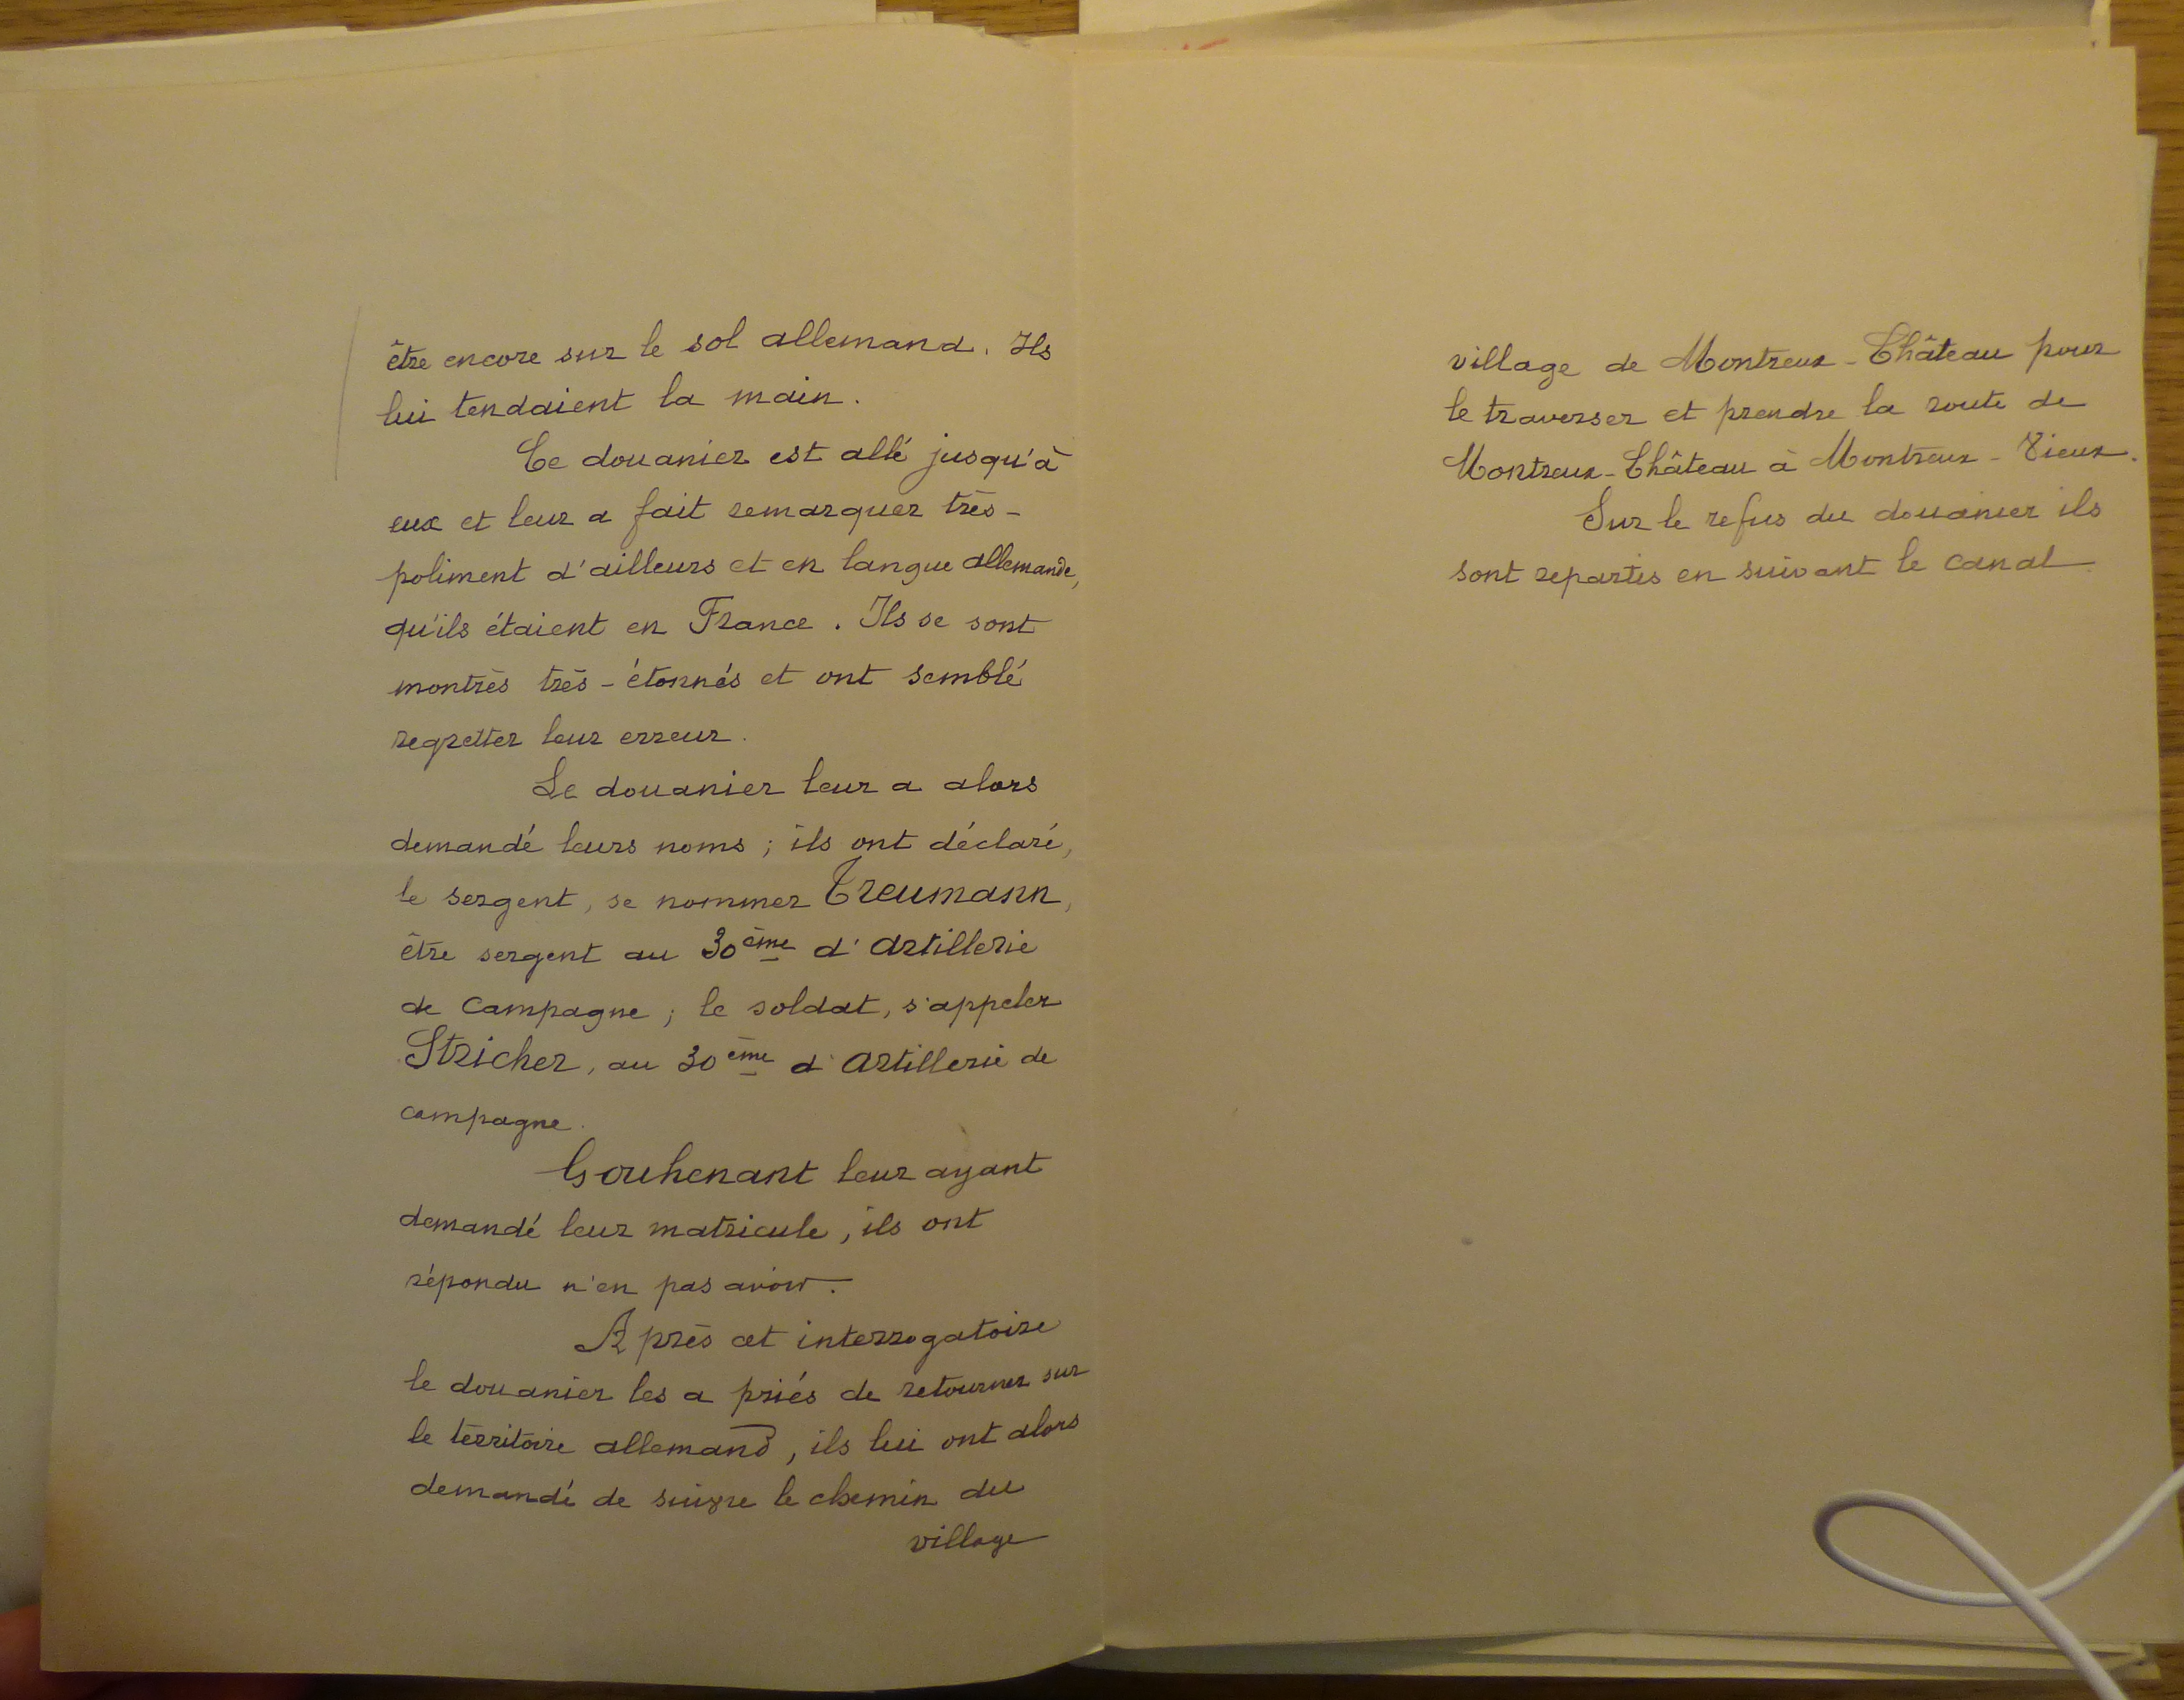 être encore sur le sol allemand. Ils
lui tendaient la main.
Ce douanier est allé jusqu'à
eux et leur a fait remarquer très-
poliment d'ailleurs et en langue allemande,
qu'ils étaient en France. Ils se sont
montrés très-étonnés et ont semblé
regretter leur erreur.
Le douanier leur a alors
demandé leurs noms ; ils ont déclaré,
le sergent, se nommer Treumann,
être sergent au 30ème d'Artillerie
de Campagne ; le soldat, s'appeler
Stricher, au 30ème d'Artillerie de
campagne.
Gouhenant leur ayant
demandé leur matricule, ils ont
répondu n'en pas avoir.
Après cet interrogatoire
le douanier les a priés de retourner sur
le territoire allemand, ils lui ont alors
demandé de suivre le chemin du
village
village de Montreux-Château pour
le traverser et prendre la route de
Montreux-Château à Montreux-Vieux.
Sur le refus du douanier ils
sont repartis en suivant le canal.